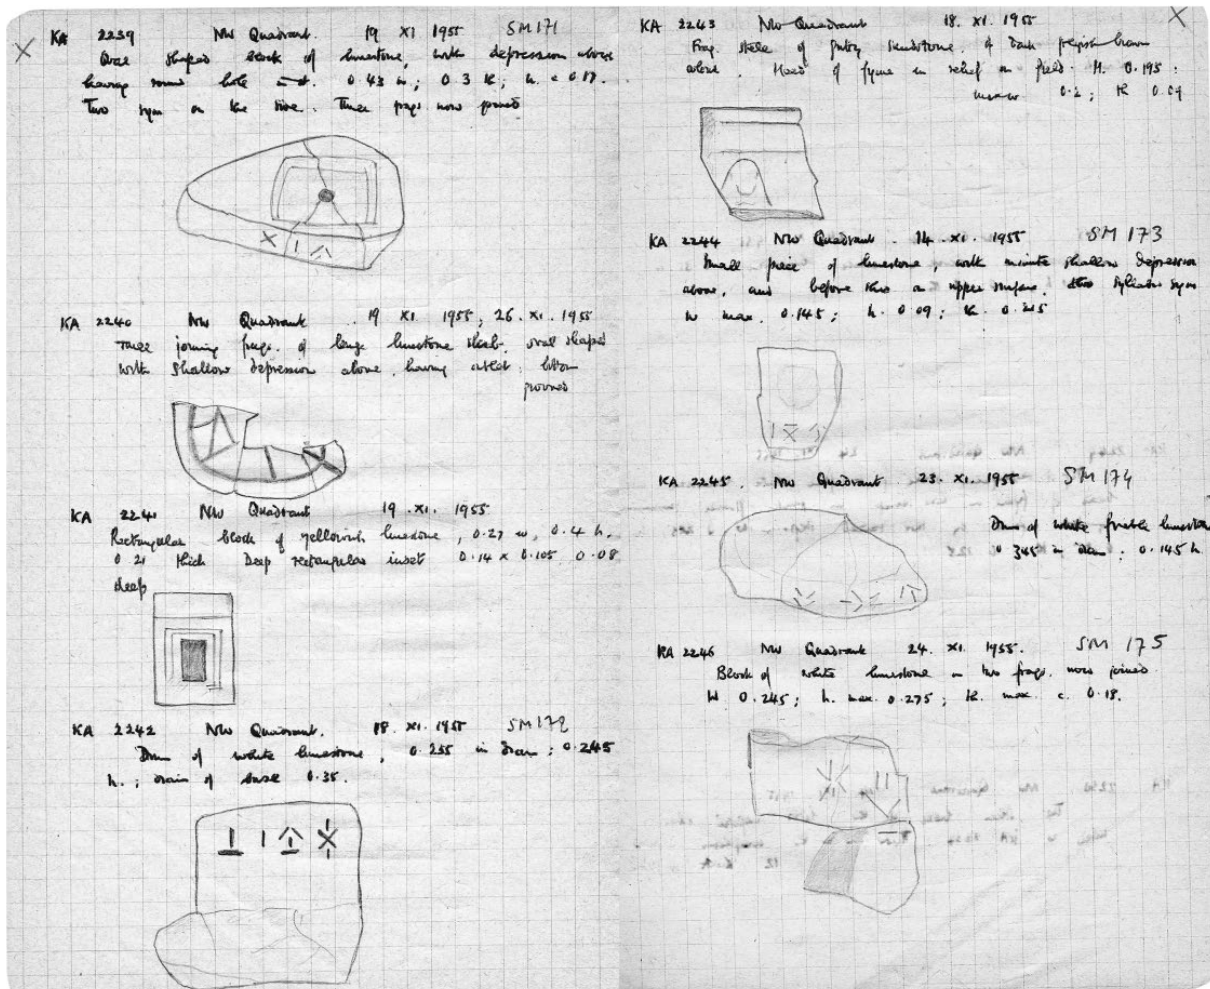 KA 2239 NW Quadrant. 19 XI 1955 SM 171
Oval shaped block of limestone, with depression above
having round hole 0.43 w; 0.3 th; h. c 0.17.
Two sym on the side. Three frags now joined
KA 2240 NW Quadrant 19 XI. 1955, 26. XI. 1955
Three joining frags. of large limestone slab, oval shaped
with shallow depression above, having outlet;
KA 2241 NW Quadrant 19 .XI. 1955
Rectangular block of yellowish limestone, 0.27 w, 0.4 h.
0.21 thick Deep rectangular inset 0.14 x 0.105, 0.08
deep
KA 2242 NW Quadrant. 18. XI. 1955 SM 172
Drum of white limestone, 0.255 in diam; 0.245
h.; diam of base 0.35.
KA 2243 NW Quadrant 18. XI. 1955
Frag. stele of sandstone, of dark greyish brown
Head of figure in relief on field. H. 0.195;
0.2; th 0.09
KA 2244 NW Quadrant. 14. XI. 1955 SM 173
Small piece of limestone, with minute shallow depression
above, and before this on upper surface, syllabic sym
W max. 0.145; h. 0.09; th. 0.205
KA 2245. NW Quadrant 23. XI. 1955 SM 174
Drum of white friable limestone
0 345 in diam; 0.145 h.
KA 2246 NW Quadrant 24. XI. 1955. SM 175
Block of white limestone in two frags. now joined
W 0.245; h. max. 0.275; th. max. c. 0.18.